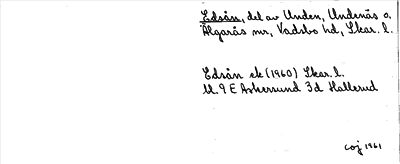 Edsån, del av Unden, Undenäs o.
Älgarås snr, Vadsbo hd, Skar. l.
Edsån ek (1960) Skar. l.
Ul. 9 E Askersund 3d Hallerud
coj 1961